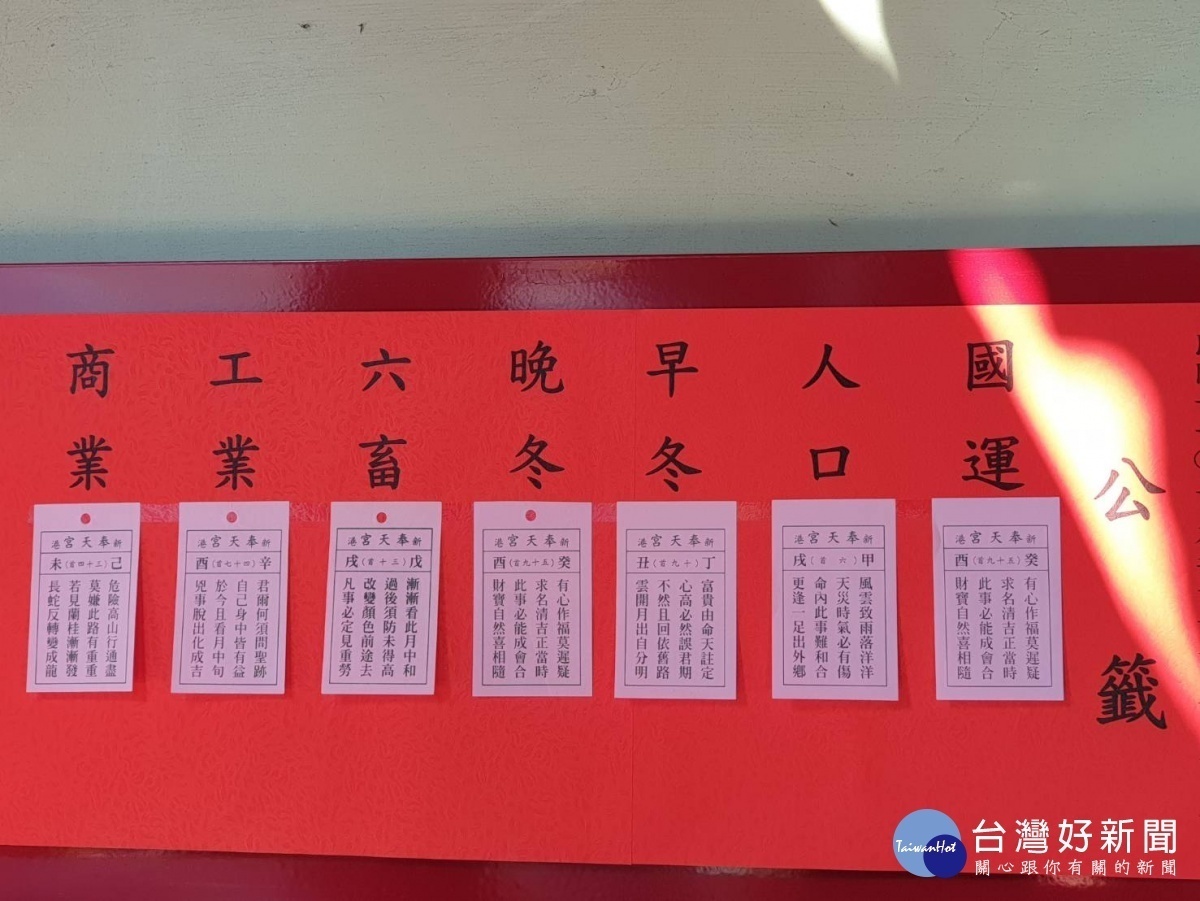 公籤
國運
新奉天宮港
癸（五十九首）酉
有心作福莫遲疑
求名清吉正當時
此事必能成會合
財寶自然喜相隨
人口
新奉天宮港
甲（六首）戌
風雲致雨落洋洋
天災時氣必有傷
命內此事難和合
更逢一足出外鄉
早冬
新奉天宮港
丁（十九首）丑
富貴由命天註定
心高必然誤君期
不然且回依舊路
雲開月出自分明
晚冬
新奉天宮港
癸（五十九首）酉
有心作福莫遲疑
求名清吉正當時
此事必能成會合
財寶自然喜相隨
六畜
新奉天宮港
戊（三十首）戌
漸漸看此月中和
過後須防未得高
改變顏色前途去
凡事必定見重勞
工業
新奉天宮港
辛（四十七首）酉
君爾何須問聖跡
自己身中皆有益
於今且看月中旬
兇事脫出化成吉
商業
新奉天宮港
己（三十四首）未
危險高山行過盡
莫嫌此路有重重
若見蘭桂漸漸發
長蛇反轉變成龍
TaiwanHot
台灣好新聞
關心跟你有關的新聞